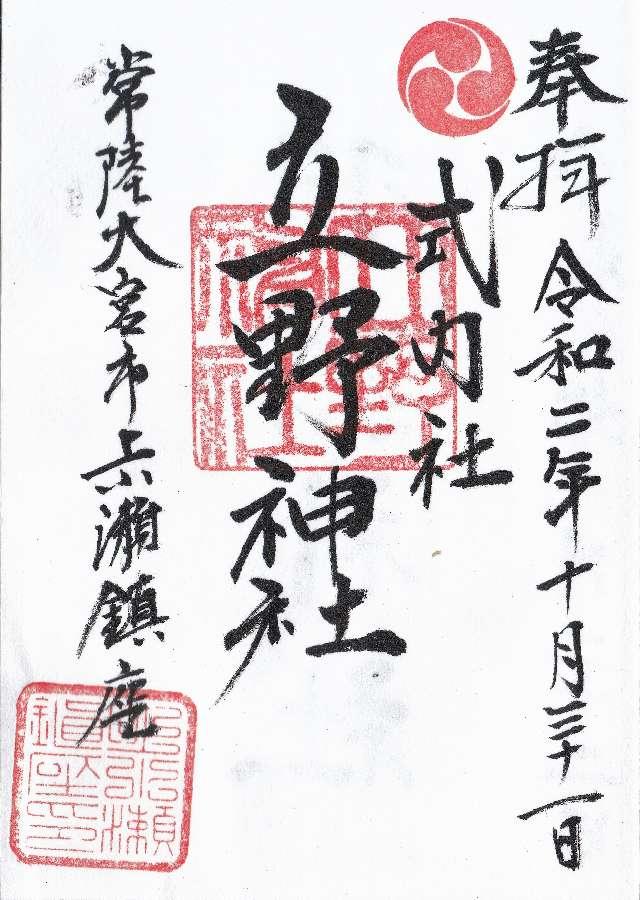 奉拝 令和二年十月三十一日
式内社
立野神社
常陸大宮市上小瀬鎮座